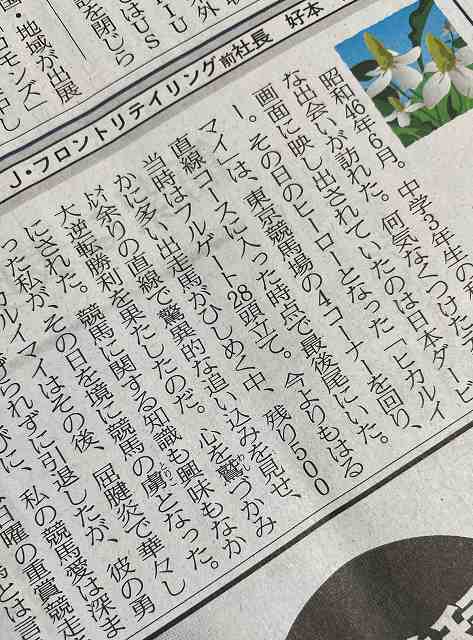 外
を閉じら
はUS
・地域が出展
モンズ」
J・フロントリテイリング前社長 好本
昭和46年6月。中学3年生の
な出会いが訪れた。何気なくつけた
画面に映し出されていたのは日本ダービ
ー。その日のヒーローとなった「ヒカルイ
マイ」は、東京競馬場の4コーナーを回り、
直線コースに入った時点で最後尾にいた。
当時はフルゲート28頭立て。今よりもはる
かに多い出走馬がひしめく中、残り500
㍍余りの直線で驚異的な追い込みを見せ、
大逆転勝利を果たしたのだ。心を鷲づかみ
にされた。競馬に関する知識も興味もなか
った私が、その日を境に競馬の虜となった。
カルイマイはその後、屈腱炎で華々し
げられずに引退したが、彼の勇
びに、私の競馬愛は深ま
日曜の重賞競走
とは言